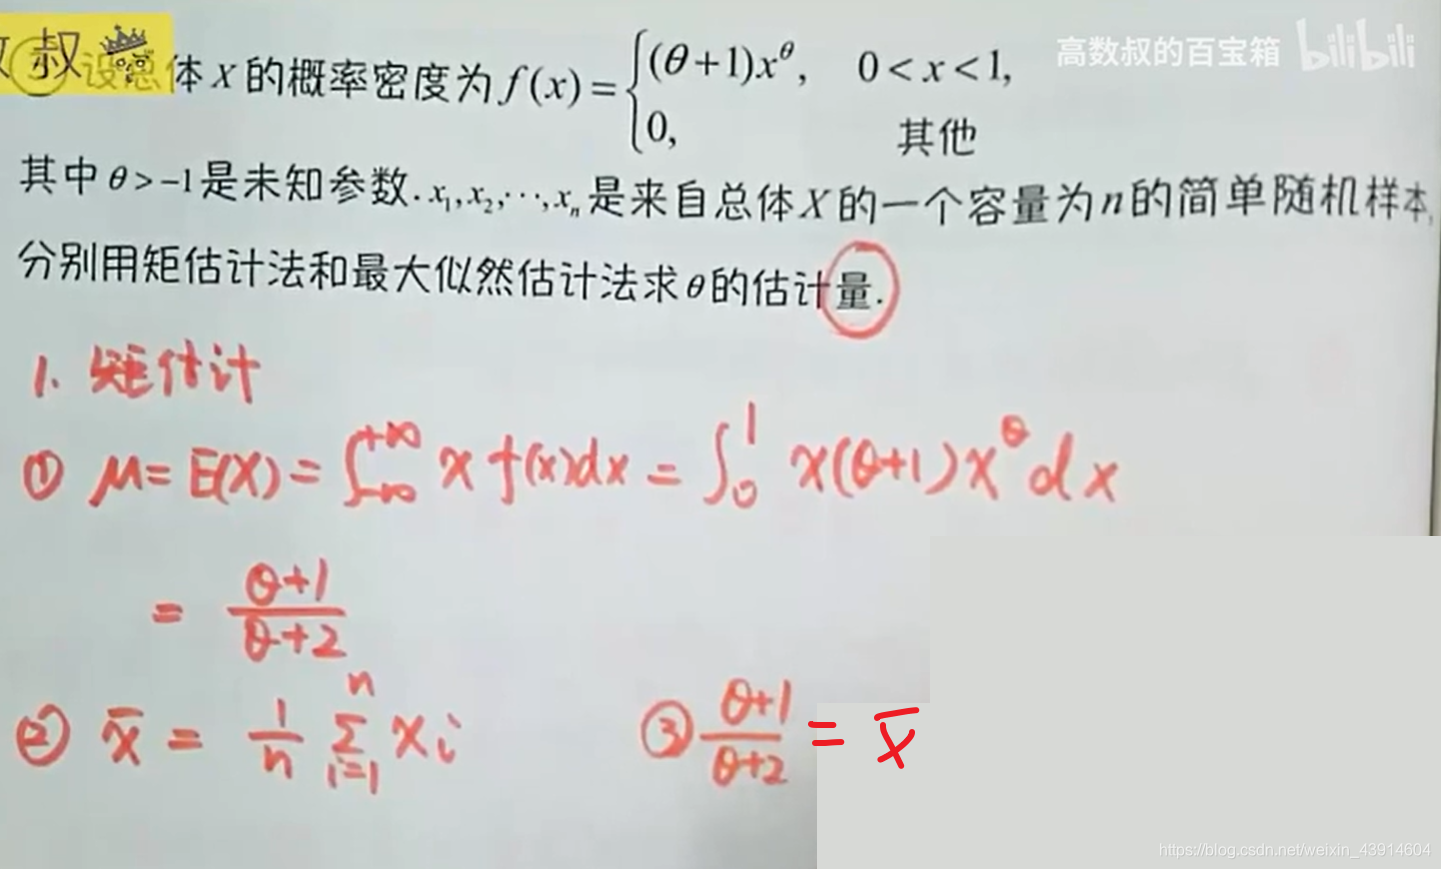 叔
高数叔的百宝箱 bilibili
设总体X的概率密度为f(x)={(θ+1)x^θ, 0<x<1,
0, 其他
其中θ>-1是未知参数.x₁,x₂,⋯,xₙ是来自总体X的一个容量为n的简单随机样本,
分别用矩估计法和最大似然估计法求θ的估计量.
1. 矩估计
① μ=E(X)=∫_{-∞}^{+∞} x f(x)dx=∫_0^1 x(θ+1)x^θ dx
= (θ+1)/(θ+2)
② x̄ = 1/n ∑_{i=1}^n xi ③ (θ+1)/(θ+2) = x̄
https://blog.csdn.net/weixin_43914604